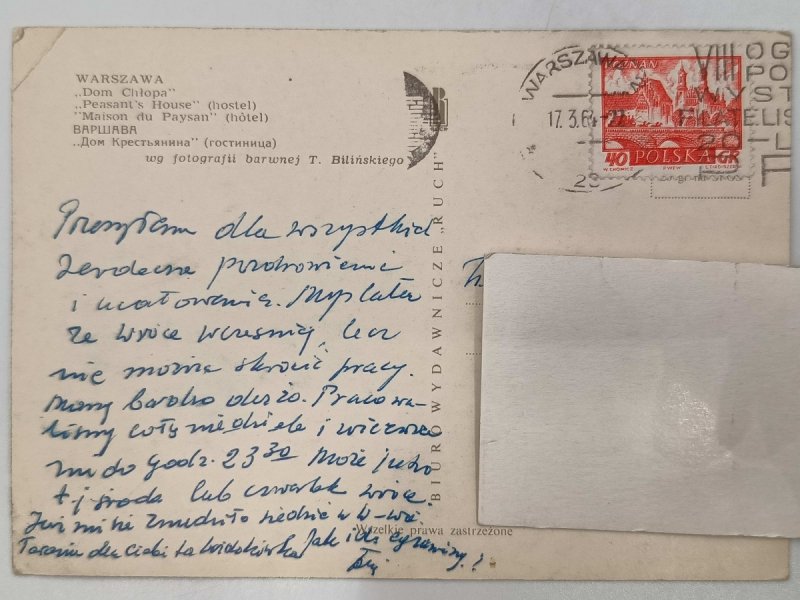 WARSZAWA
„Dom Chłopa"
„Peasant's House" (hostel)
"Maison du Paysan" (hôtel)
ВАРШАВА
„Дом Крестьянина" (гостиница)
wg fotografii barwnej T. Bilińskiego
BIURO WYDAWNICZE „RUCH"
WARSZAWA
17.3.64-2
POZNAŃ
40 POLSKA GR
VIII OG
PO
WYST
FILATELIS
Przesyłam dla wszystkich
serdeczne pozdrowienia
i ucałowania. Myślałam
że wrócę wcześniej, lecz
nie można skrócić pracy.
Mamy bardzo dużo. Pracowa-
liśmy całą niedzielę i wczoraj
do godz. 23 30 Może jutro
t.j środa lub czwartek wrócę.
Już mi się znudziło siedzieć w W-wie.
dla Ciebie ta widokówka Jak idą egzaminy?
Wszelkie prawa zastrzeżone